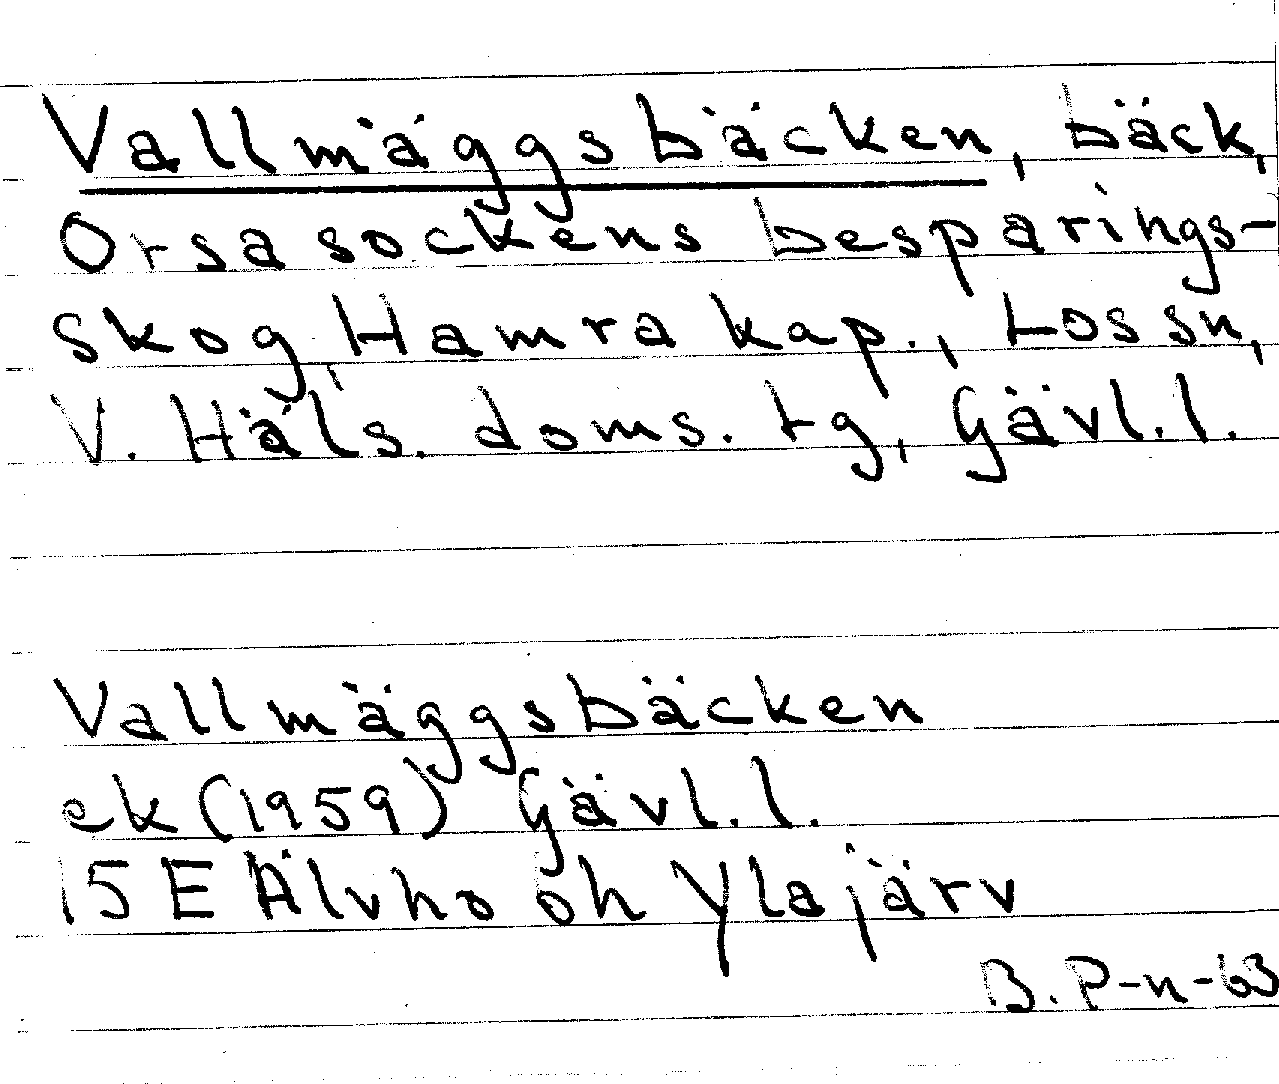 Vallmäggsbäcken, bäck,
Orsa sockens besparings-
skog, Hamra kap., Los sn,
V. Häls. doms. tg, Gävl. l.
Vallmäggsbäcken
ek (1959) Gävl. l.
15 E Älvho öh Ylajärv
B. P-n-63